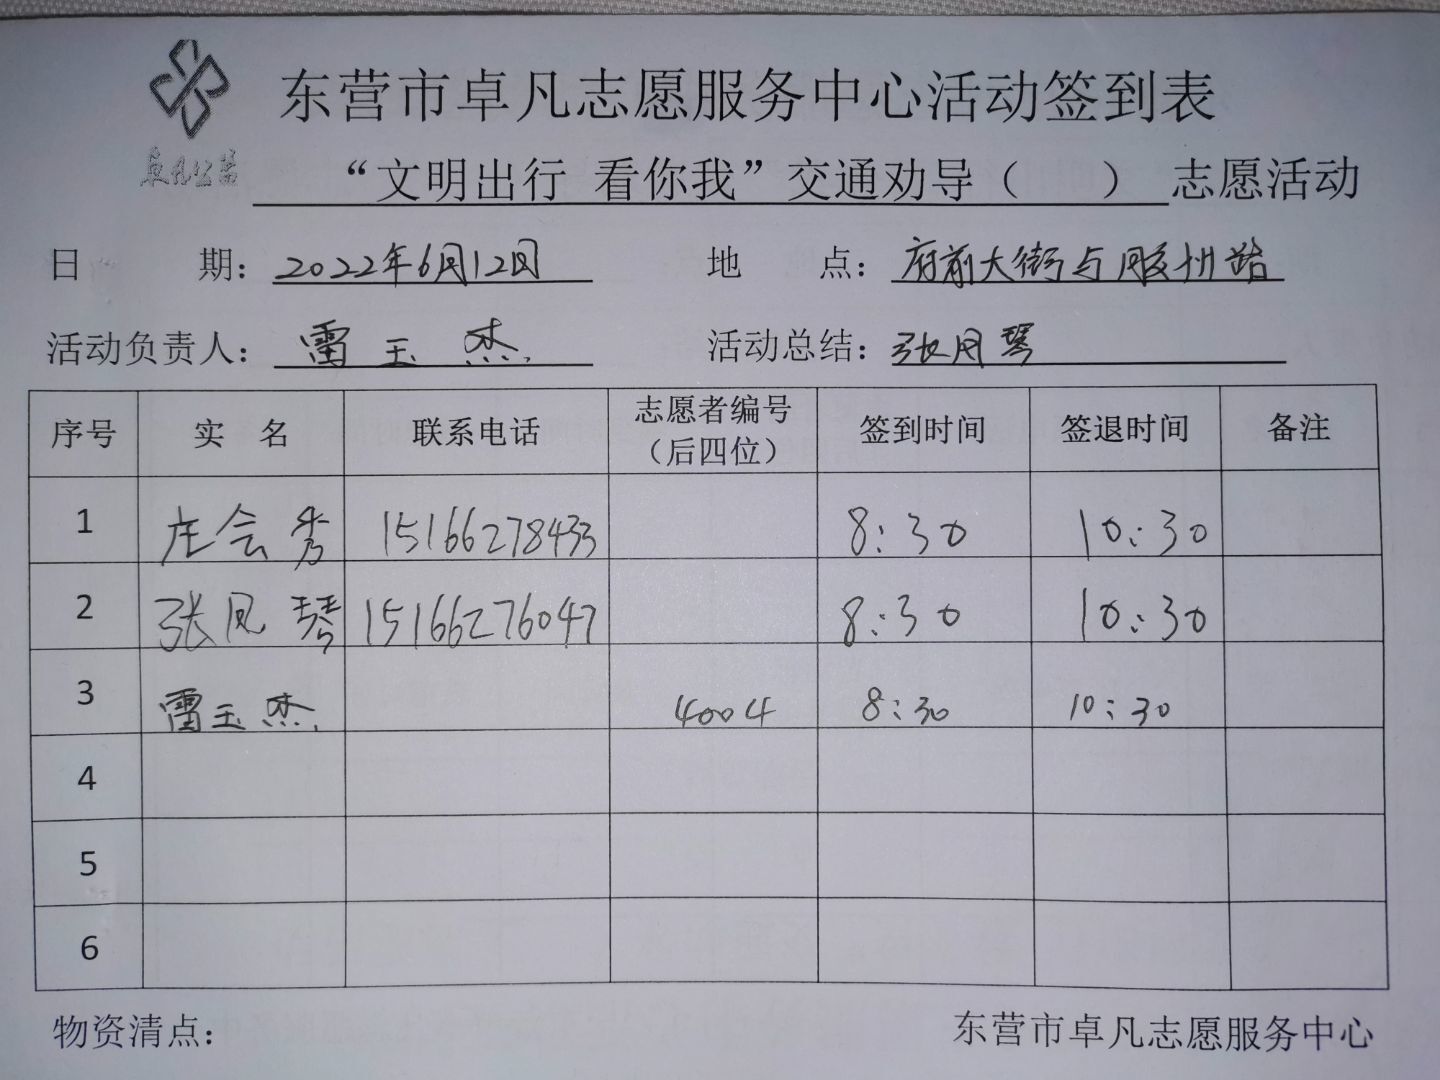 东营市卓凡志愿服务中心活动签到表
卓凡公益
“文明出行 看你我”交通劝导（ ） 志愿活动
日 期：2022年6月12日 地 点：府前大街与胶州路
活动负责人：雷玉杰 活动总结：张凤琴
序号 实 名 联系电话 志愿者编号（后四位） 签到时间 签退时间 备注
1 庄会秀 15166278433 8:30 10:30
2 张凤琴 15166276047 8:30 10:30
3 雷玉杰 4004 8:30 10:30
4
5
6
物资清点： 东营市卓凡志愿服务中心